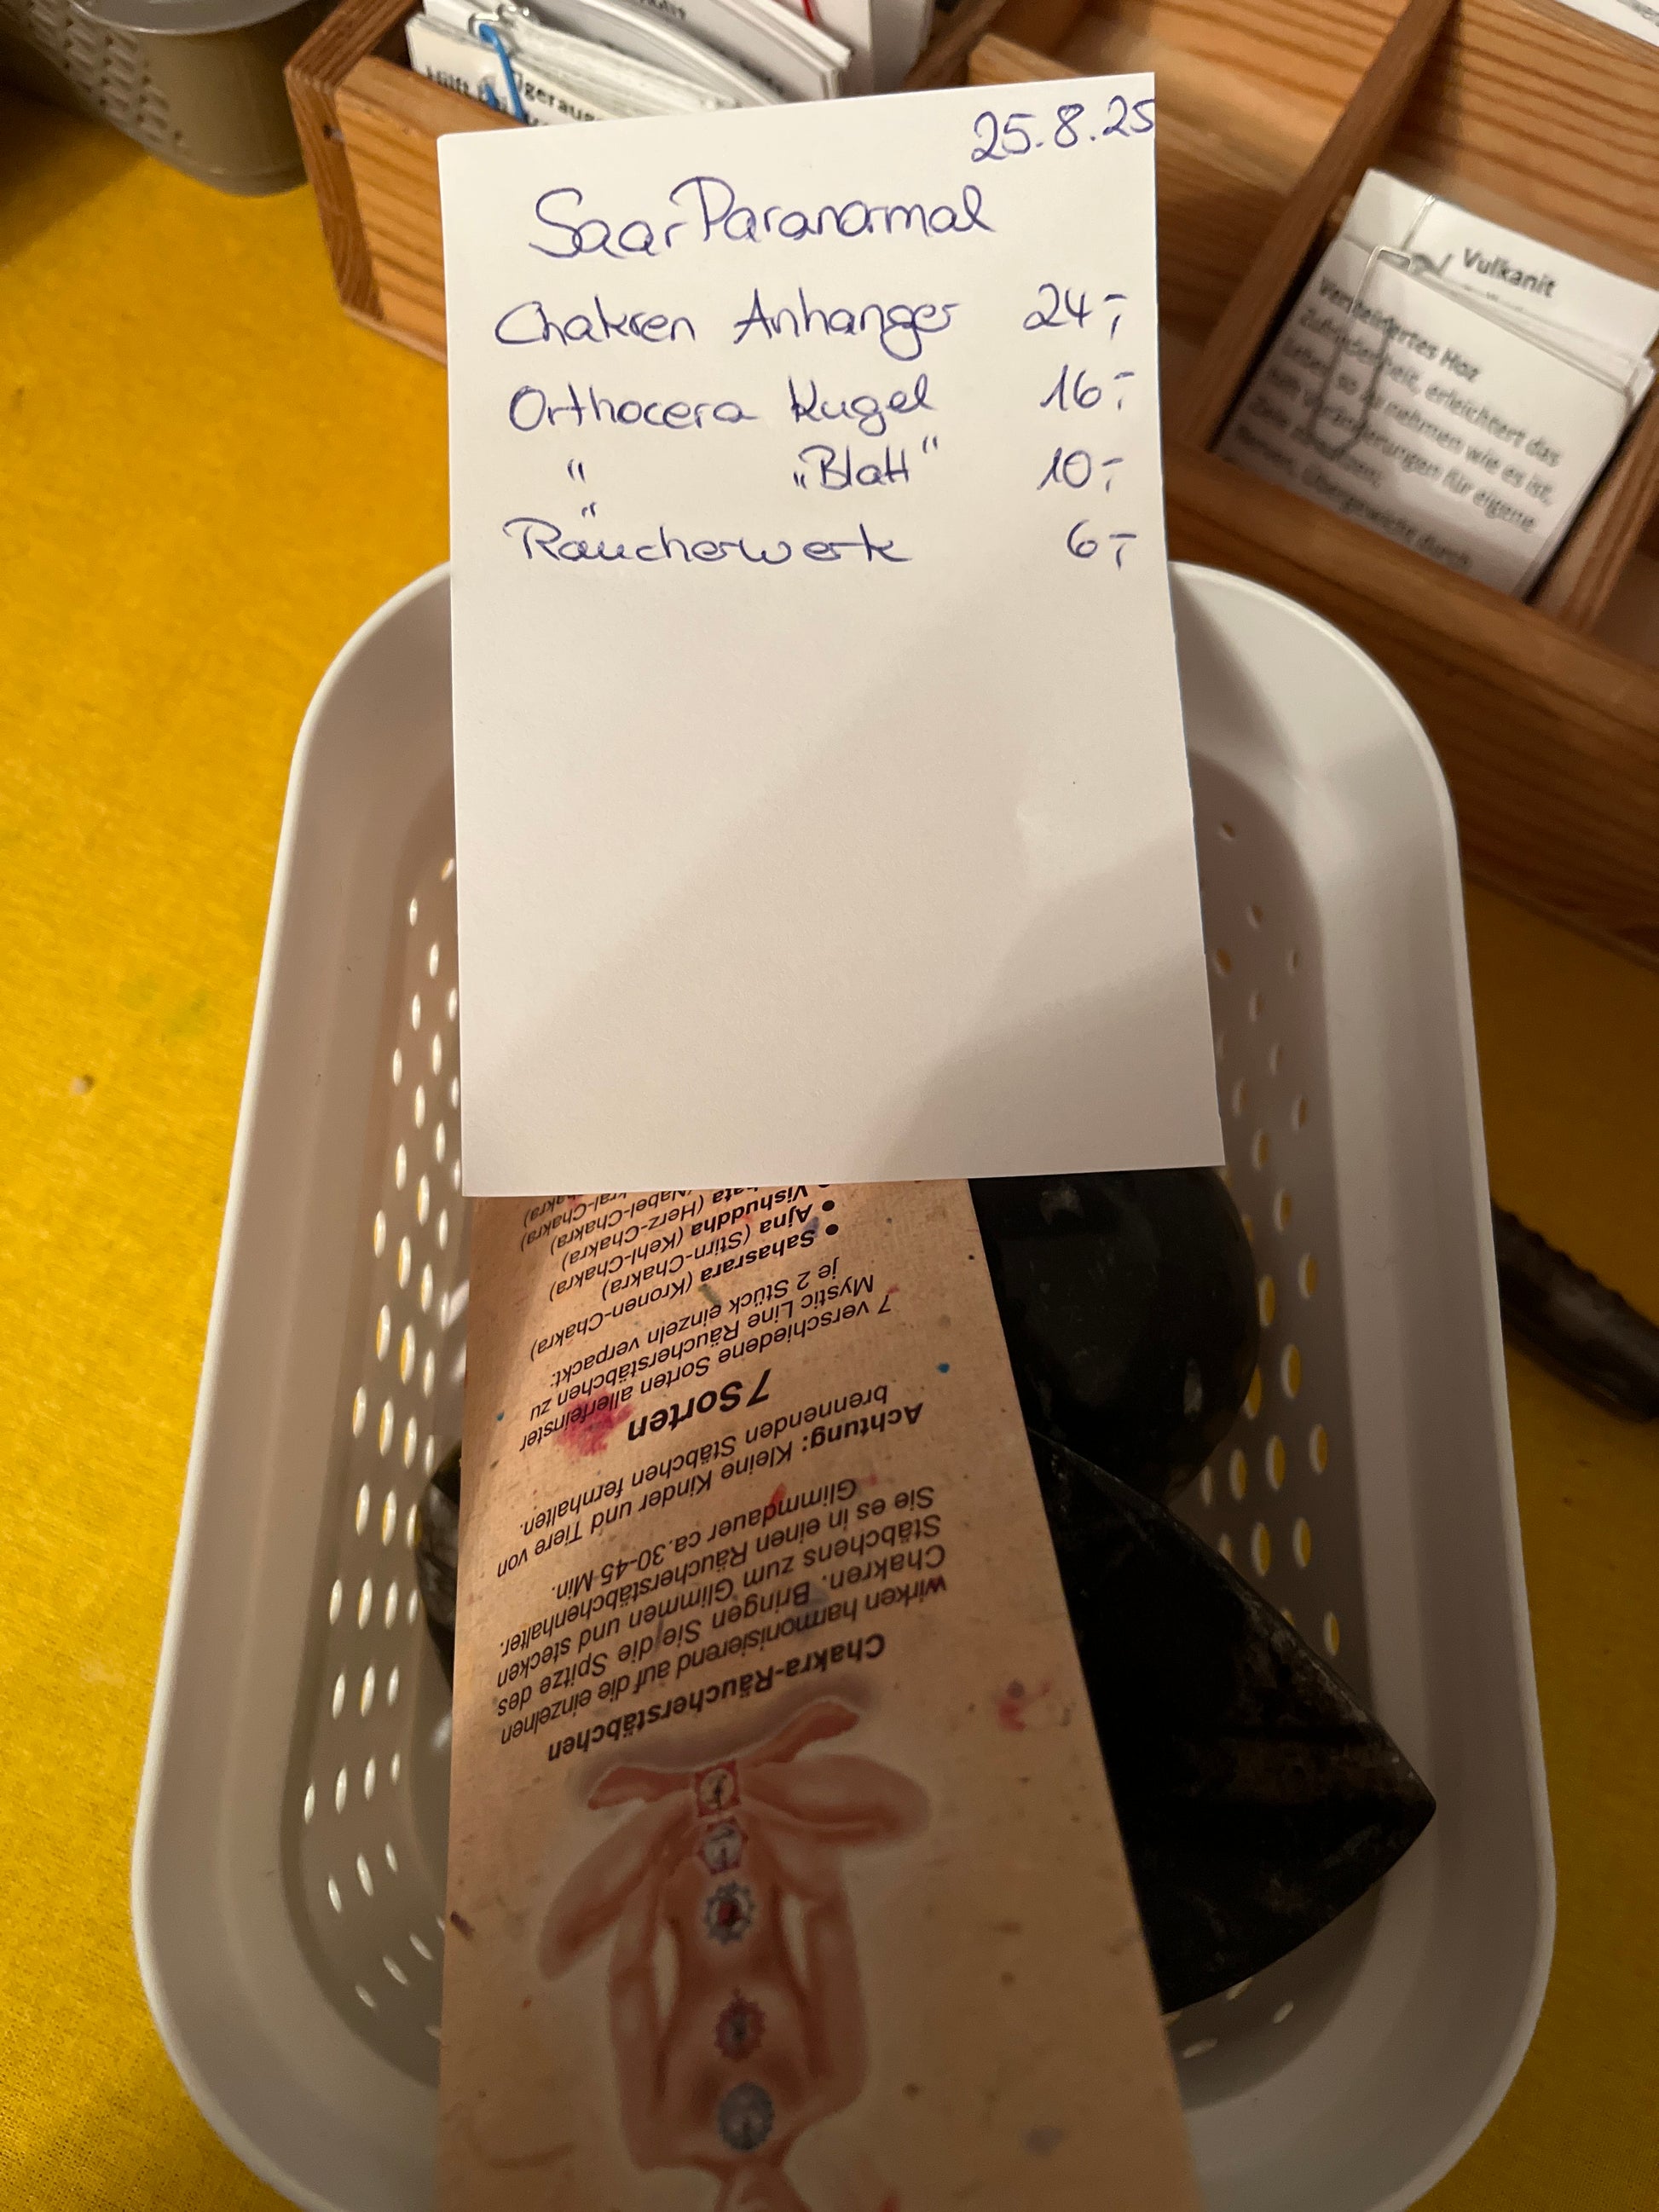 25.8.25
SaarParanormal
Chakren Anhänger 24,-
Orthocera Kugel 16,-
" „Blatt" 10,-
Räucherwerk 6,-
Vulkanit
Versteinertes Hoz
Zufriedenheit, erleichtert das
Leben so zu nehmen wie es ist,
hilft Veränderungen für eigene
Übergewicht durch
Chakra-Räucherstäbchen
wirken harmonisierend auf die einzelnen
Chakren. Bringen Sie die Spitze des
Stäbchens zum Glimmen und stecken
Sie es in einen Räucherstäbchenhalter.
Glimmdauer ca.30-45 Min.
Achtung: Kleine Kinder und Tiere von
brennenden Stäbchen fernhalten.
7 Sorten
7 verschiedene Sorten allerfeinster
Mystic Line Räucherstäbchen zu
je 2 Stück einzeln verpackt:
• Sahasrara (Kronen-Chakra)
• Ajna (Stirn-Chakra)
• Vishuddha (Kehl-Chakra)
(Herz-Chakra)
(Nabel-Chakra)